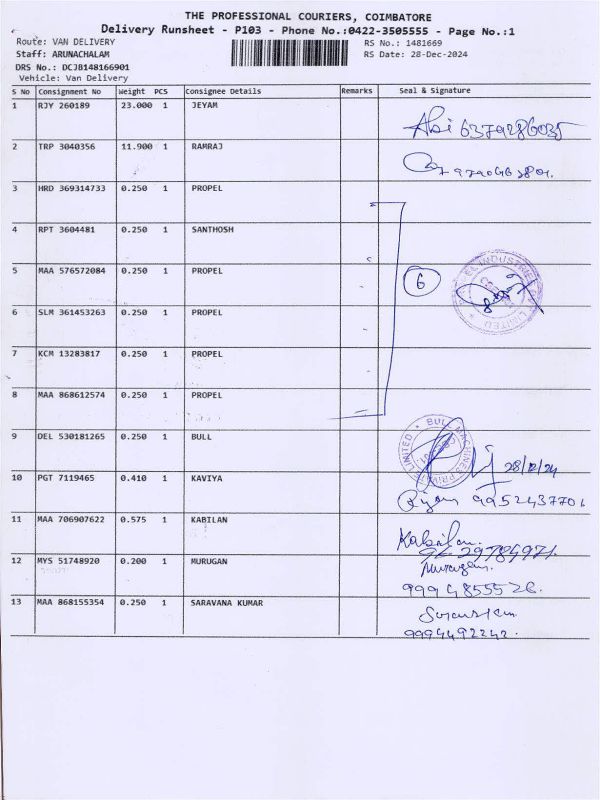 THE PROFESSIONAL COURIERS, COIMBATORE
Delivery Runsheet - P103 - Phone No.:0422-3505555 - Page No.:1
Route: VAN DELIVERY RS No.: 1481669
Staff: ARUNACHALAM RS Date: 28-Dec-2024
DRS No.: DCJB148166901
Vehicle: Van Delivery
S No Consignment No Weight PCS Consignee Details Remarks Seal & Signature
1 RJY 260189 23.000 1 JEYAM
Abi 6379286035
2 TRP 3040356 11.900 1 RAMRAJ
3 HRD 369314733 0.250 1 PROPEL
4 RPT 3604481 0.250 1 SANTHOSH
5 MAA 576572084 0.250 1 PROPEL
6
6 SLM 361453263 0.250 1 PROPEL
7 KCM 13283817 0.250 1 PROPEL
8 MAA 868612574 0.250 1 PROPEL
9 DEL 530181265 0.250 1 BULL
BULL MACHINES PRIVATE LIMITED
28/12/24
10 PGT 7119465 0.410 1 KAVIYA
9952437701
11 MAA 706907622 0.575 1 KABILAN
Kabilan
12 MYS 51748920 0.200 1 MURUGAN
Murugan
9994855526.
13 MAA 868155354 0.250 1 SARAVANA KUMAR
9994492242.